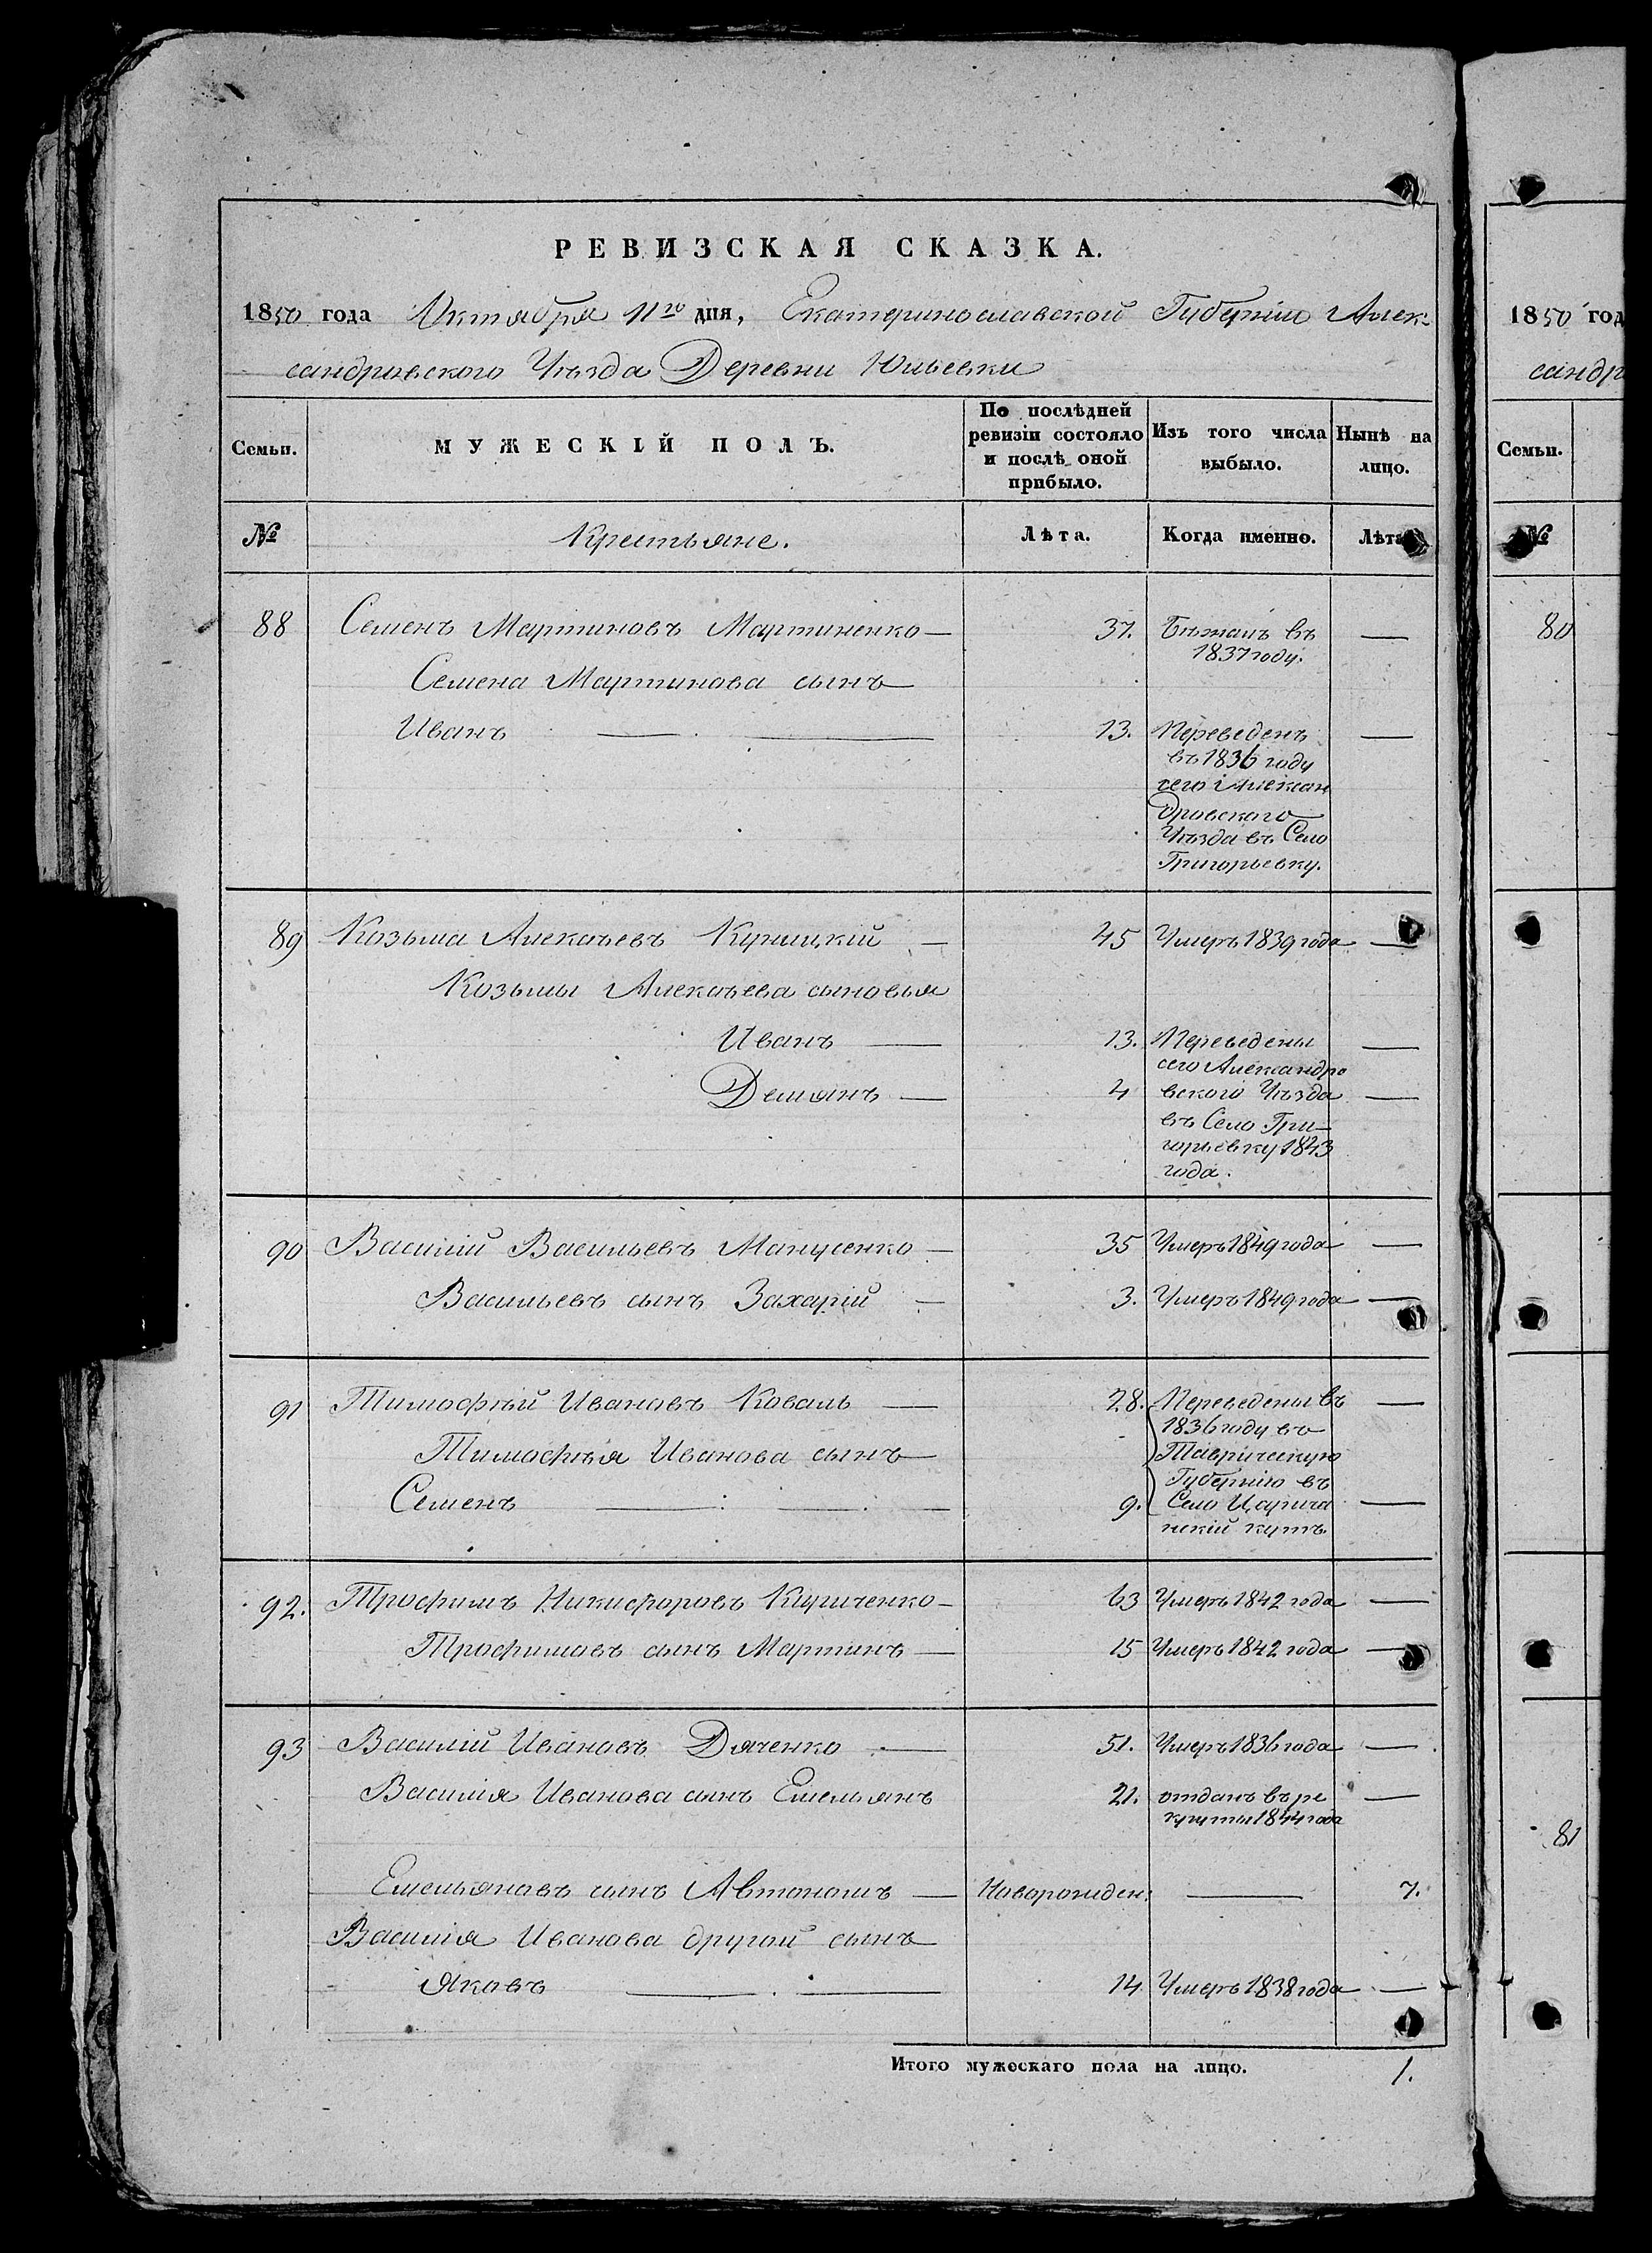 РЕВИЗСКАЯ СКАЗКА.
1850 года Октября 11го дня, Екатеринославской Губерніи Алек-
сандровскаго Уѣзда Деревни Юльевки
Семьи.
МУЖЕСКІЙ ПОЛЪ.
По послѣдней ревизіи состояло и послѣ оной прибыло.
Изъ того числа выбыло.
Нынѣ на лицо.
№
Крестьяне.
Лѣта.
Когда именно.
Лѣта
88 Семенъ Мартиновъ Мартиненко — 37. Бѣжалъ въ —
1837 году.
Семена Мартинова сынъ
Иванъ — 13. Переведенъ —
въ 1836 году
сего Алексан
дровского
Уѣзда въ Село
Григорьевку.
89 Козьма Алексѣевъ — 45 Умеръ 1839 года —
Козьмы Алексѣева сыновья
Иванъ — 13. Переведены —
сего Александро
Демянъ — 4 вского Уѣзда —
въ Село Гри-
горьевку 1843
года.
90 Василій Васильевъ Манусенко — 35 Умеръ 1849 года —
Васильевъ сынъ Захарій — 3. Умеръ 1849 года —
91 Тимофѣй Ивановъ Коваль — 28. Переведены въ —
1836 году въ
Тимофѣя Иванова сынъ
Таврическую
Губернію въ
Семенъ — 9. Село Царича —
нскій кутъ.
92. Трофимъ Никифоровъ Кириченко — 63 Умеръ 1842 года —
Трофимовъ сынъ Мартинъ — 15 Умеръ 1842 года —
93 Василій Ивановъ Дяченко — 51. Умеръ 1836 года —
Василія Иванова сынъ Емельянъ 21. отданъ въ ре —
круты 1844 года
Емельяновъ сынъ Автономъ — Новорожден. — 7.
Василія Иванова другой сынъ
Яковъ — 14 Умеръ 1838 года —
Итого мужескаго пола на лицо. 1.
1850 год
сандр
Семьи.
№
80
81